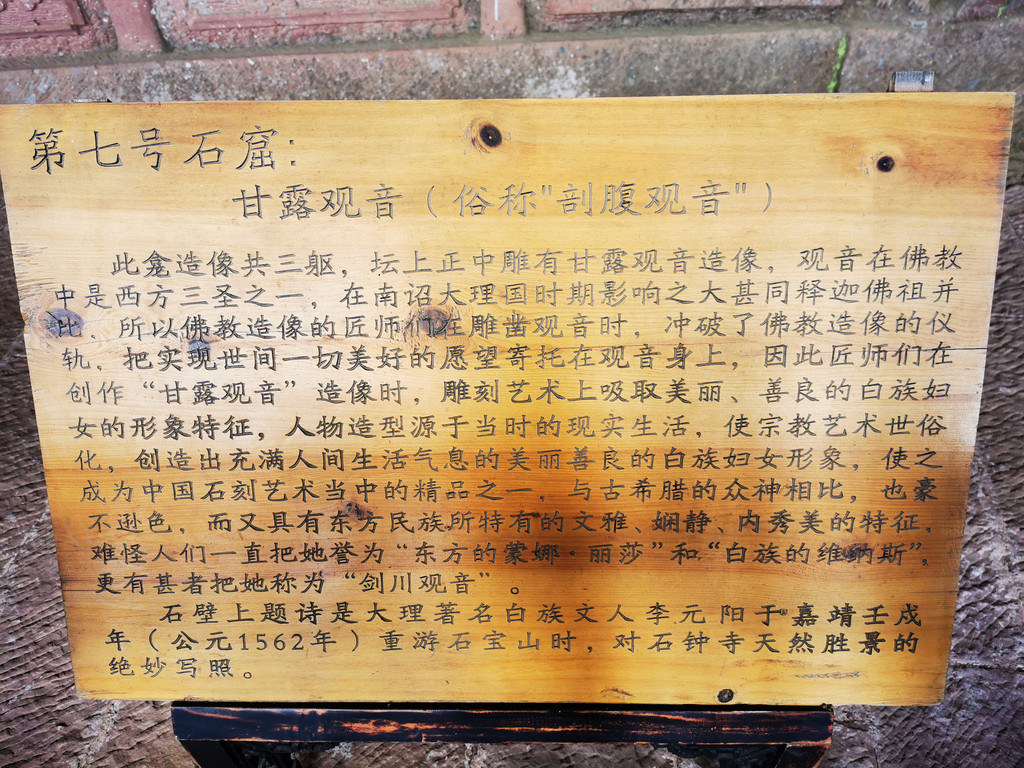 第七号石窟:
甘露观音（俗称"剖腹观音"）
此龛造像共三躯，坛上正中雕有甘露观音造像，观音在佛教
中是西方三圣之一，在南诏大理国时期影响之大甚同释迦佛祖并
比，所以佛教造像的匠师们在雕凿观音时，冲破了佛教造像的仪
轨，把实现世间一切美好的愿望寄托在观音身上，因此匠师们在
创作“甘露观音”造像时，雕刻艺术上吸取美丽、善良的白族妇
女的形象特征，人物造型源于当时的现实生活，使宗教艺术世俗
化，创造出充满人间生活气息的美丽善良的白族妇女形象，使之
成为中国石刻艺术当中的精品之一，与古希腊的众神相比，也豪
不逊色，而又具有东方民族所特有的文雅、娴静、内秀美的特征，
难怪人们一直把她誉为“东方的蒙娜·丽莎”和“白族的维纳斯”，
更有甚者把她称为“剑川观音”。
石壁上题诗是大理著名白族文人李元阳于嘉靖壬戌
年（公元1562年）重游石宝山时，对石钟寺天然胜景的
绝妙写照。